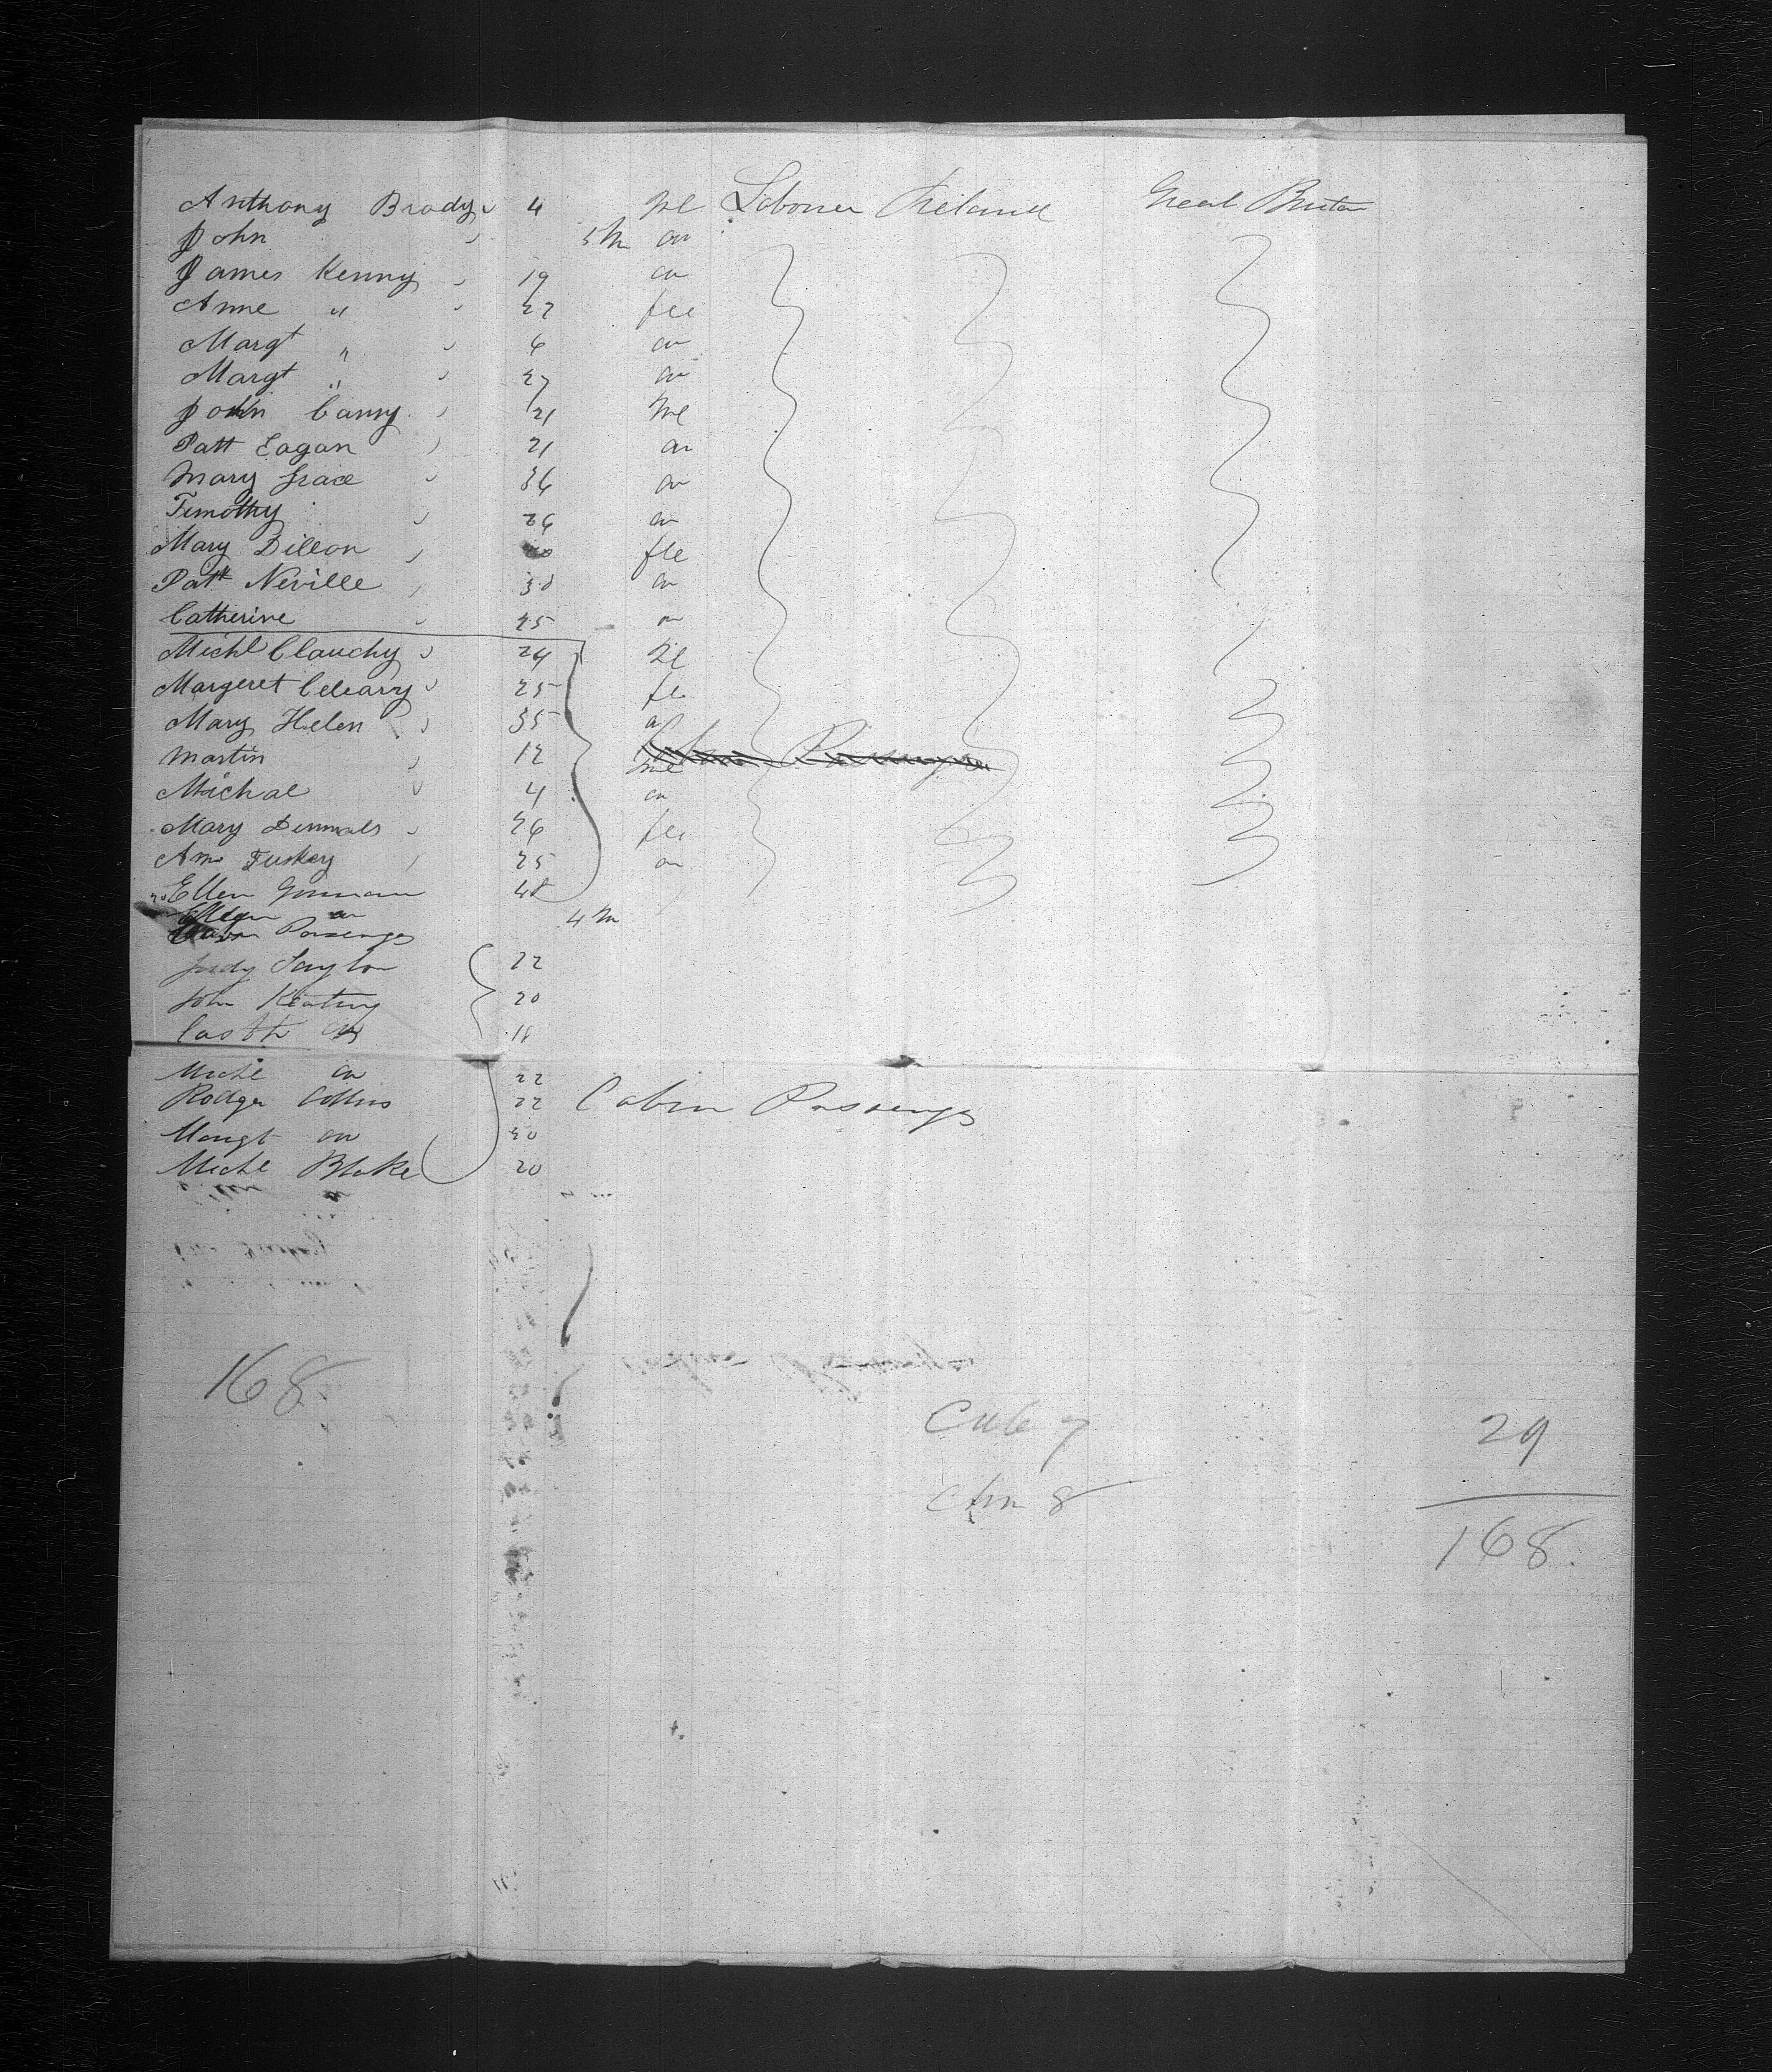 Anthony Brady 4 Me Laborer Ireland Great Britan
John 5 M do
James Kenny 19 do
Anne " 27 fle
Margt " 6 do
Margt " 27 do
John Canny 21 Me
Patt Eagan 21 do
Mary Grace 36 do
Timothy 26 do
Mary Dillon fle
Patk Neville 30 do
Catherine 25 do
Michl Clauchy 24 Me
Margeret Celeary 25 fle
Mary Helen 35 do
Martin 12 Me
Michal 4 do
Mary Dennals 26 fle
Ann Tuskey 25 do
Ellen Gorman 48
Ellen do 4 M
Cabin Passengs
Judy Taylor 22
John Keating 20
Cath do 18
Michl do 22
Rodger Collins 22 Cabin Passengs
Margt do 30
Michl Blake 20
168
7
29
8
168